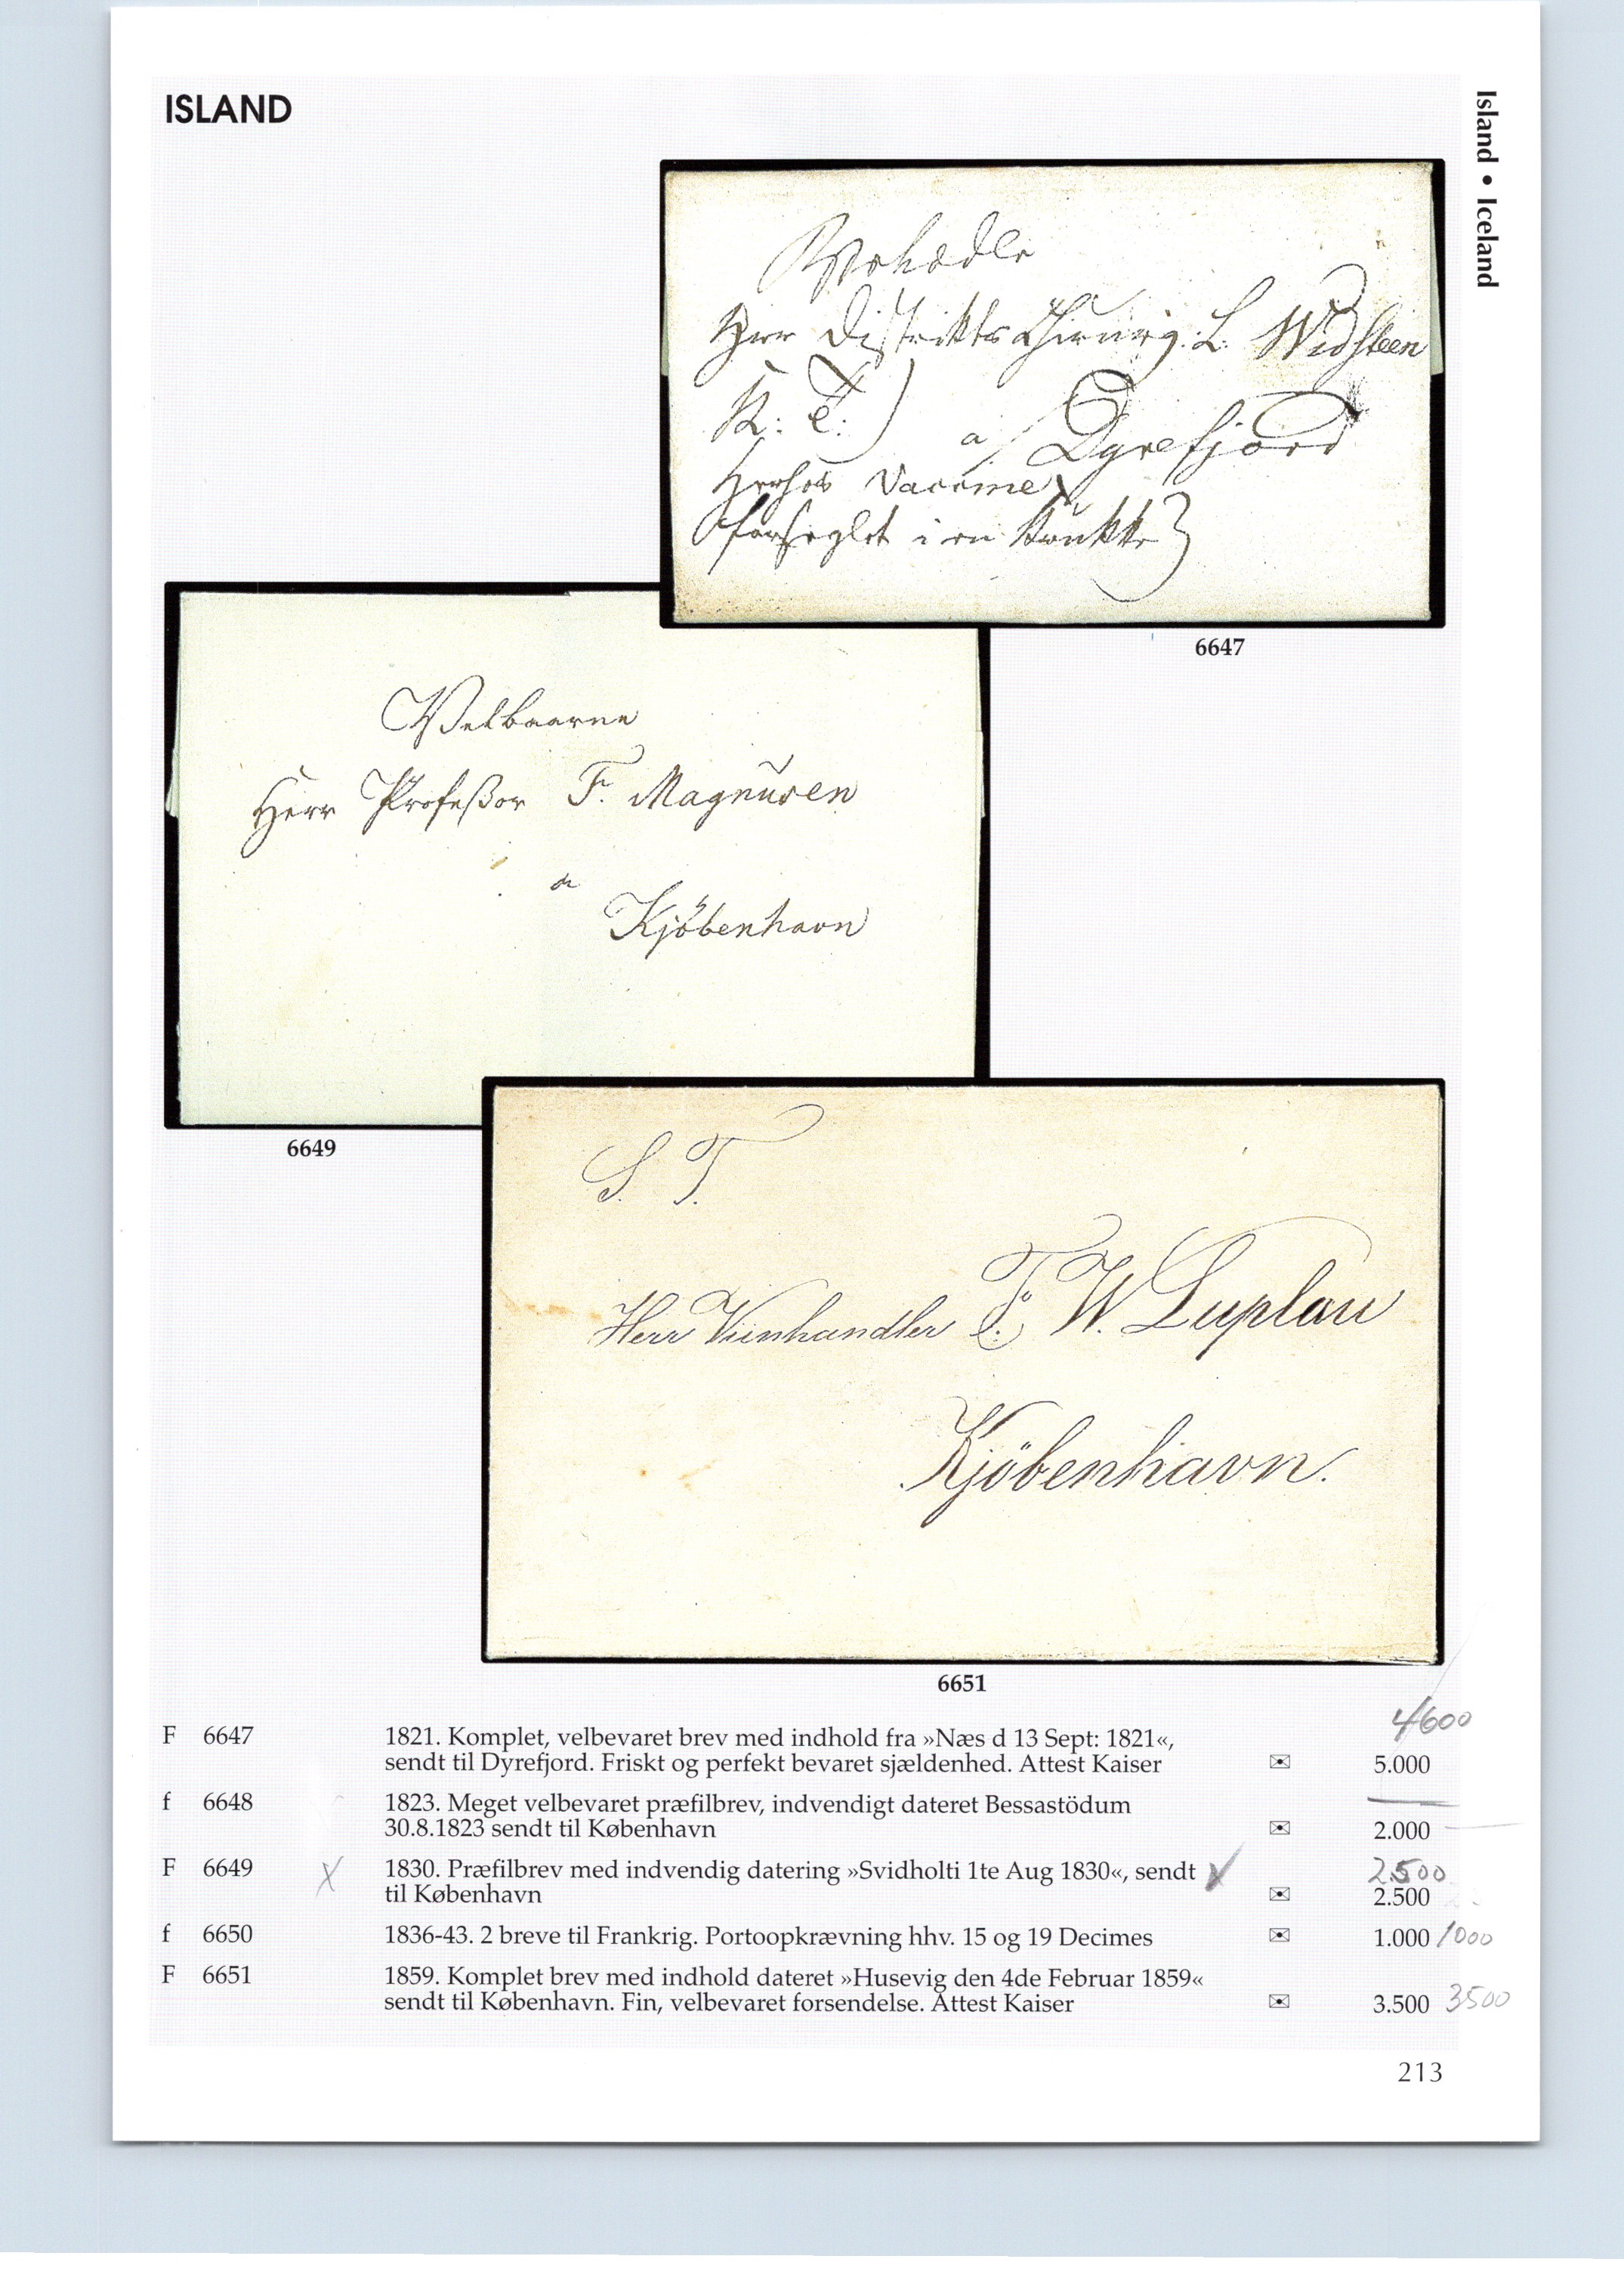 ISLAND
Island • Iceland
Herr Distrikts Chirurg: L. Widsteen
K: T:)
a/ Dyrefjord
Herhos Vaccine
forseglet i en
6647
Velbaarne
Herr Profeßor F. Magnusen
a
Kjöbenhavn
6649
S. T.
Herr Viinhandler F. W. Luplau
Kjöbenhavn.
6651
4600
F 6647 1821. Komplet, velbevaret brev med indhold fra »Næs d 13 Sept: 1821«,
sendt til Dyrefjord. Friskt og perfekt bevaret sjældenhed. Attest Kaiser ✉ 5.000
f 6648 1823. Meget velbevaret præfilbrev, indvendigt dateret Bessastödum
30.8.1823 sendt til København ✉ 2.000
F 6649 X 1830. Præfilbrev med indvendig datering »Svidholti 1te Aug 1830«, sendt 2.500
til København ✉ 2.500
f 6650 1836-43. 2 breve til Frankrig. Portoopkrævning hhv. 15 og 19 Decimes ✉ 1.000 1000
F 6651 1859. Komplet brev med indhold dateret »Husevig den 4de Februar 1859«
sendt til København. Fin, velbevaret forsendelse. Attest Kaiser ✉ 3.500 3500
213